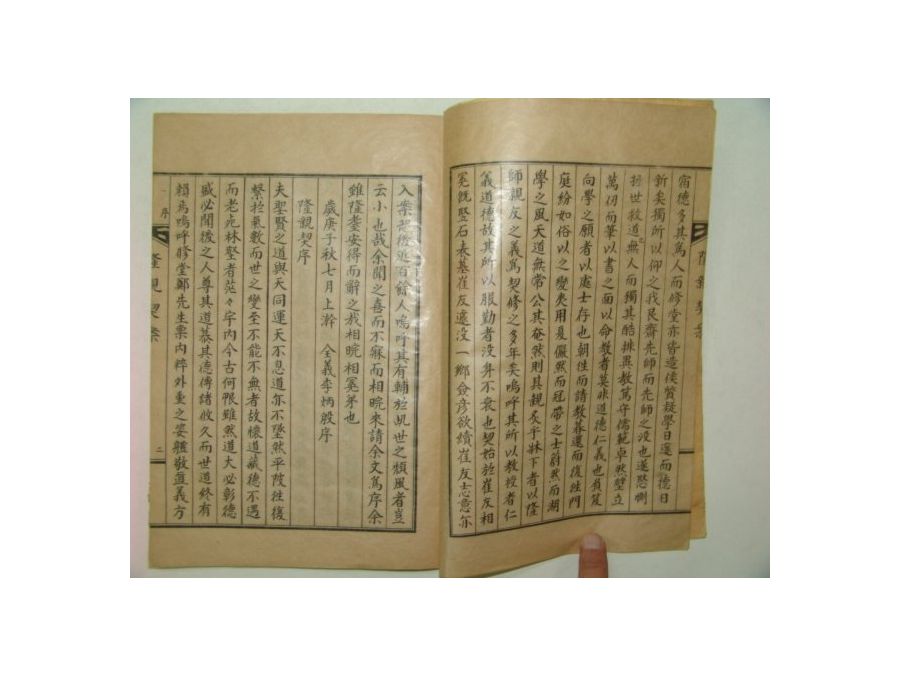 宿德多其爲人而修堂亦皆造侯質疑學日進而德日
新矣獨所以仰之我艮齋先師而先師之没也遂慇惻
扵世救道無人而獨其酷排異敎篤守儒範卓然壁立
萬仞而筆以書之面以命敎者莫非道德仁義也負笈
向學之願者以處士存也朝徃而請敎暮還而復徃門
庭紛如俗以之變夷用夏儼然而冠帶之士蔚然而湖
學之風天道無常公其奄然則其親炙乎牀下者以隆
師親友之義爲契修之多年矣嗚呼其所以敎授者仁
義道德故其所以服勤者没身不衰也契始扵崔友相
冕旣竪石表墓崔友遽没一鄕僉彦欲續崔友志意亦
隆親契案
入案
近百餘人嗚呼其有輔扵此世之頹風者豈
云小也哉余聞之喜而不寐而相晥來請余文爲序余
雖隆耋安得而辭之哉相晥相冕弟也
歲庚子秋七月上澣 全義李炳殷序
隆親契序
夫聖賢之道與天同運天不息道亦不墜然平陂徃復
繫扵氣數而世之變至不能不無者故懷道藏德不遇
而老死林壑者茫々宇内今古何限雖然道大必彰德
盛必聞後之人尊其道慕其德傳諸攸久而世道終有
賴焉嗚呼修堂鄭先生禀内粹外重之姿
敬直義方
隆親契案
序
二